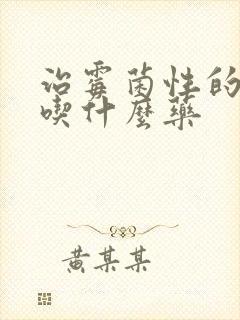 治霉菌性的
喫什麼藥
黄某某